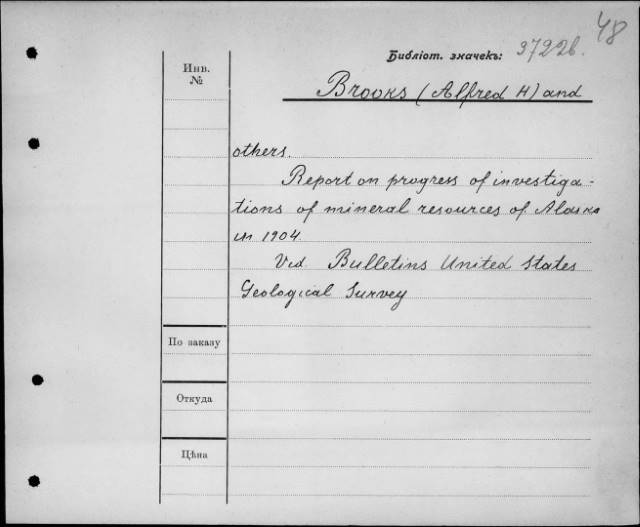 48
Библіот. значекъ: 3722б.
Инв.
№
Brooks (Alfred H) and
others.
Report on progress of investiga-
tions of mineral resources of Alaska
in 1904.
Vid. Bulletins United States
Geological Survey
По заказу
Откуда
Цѣна